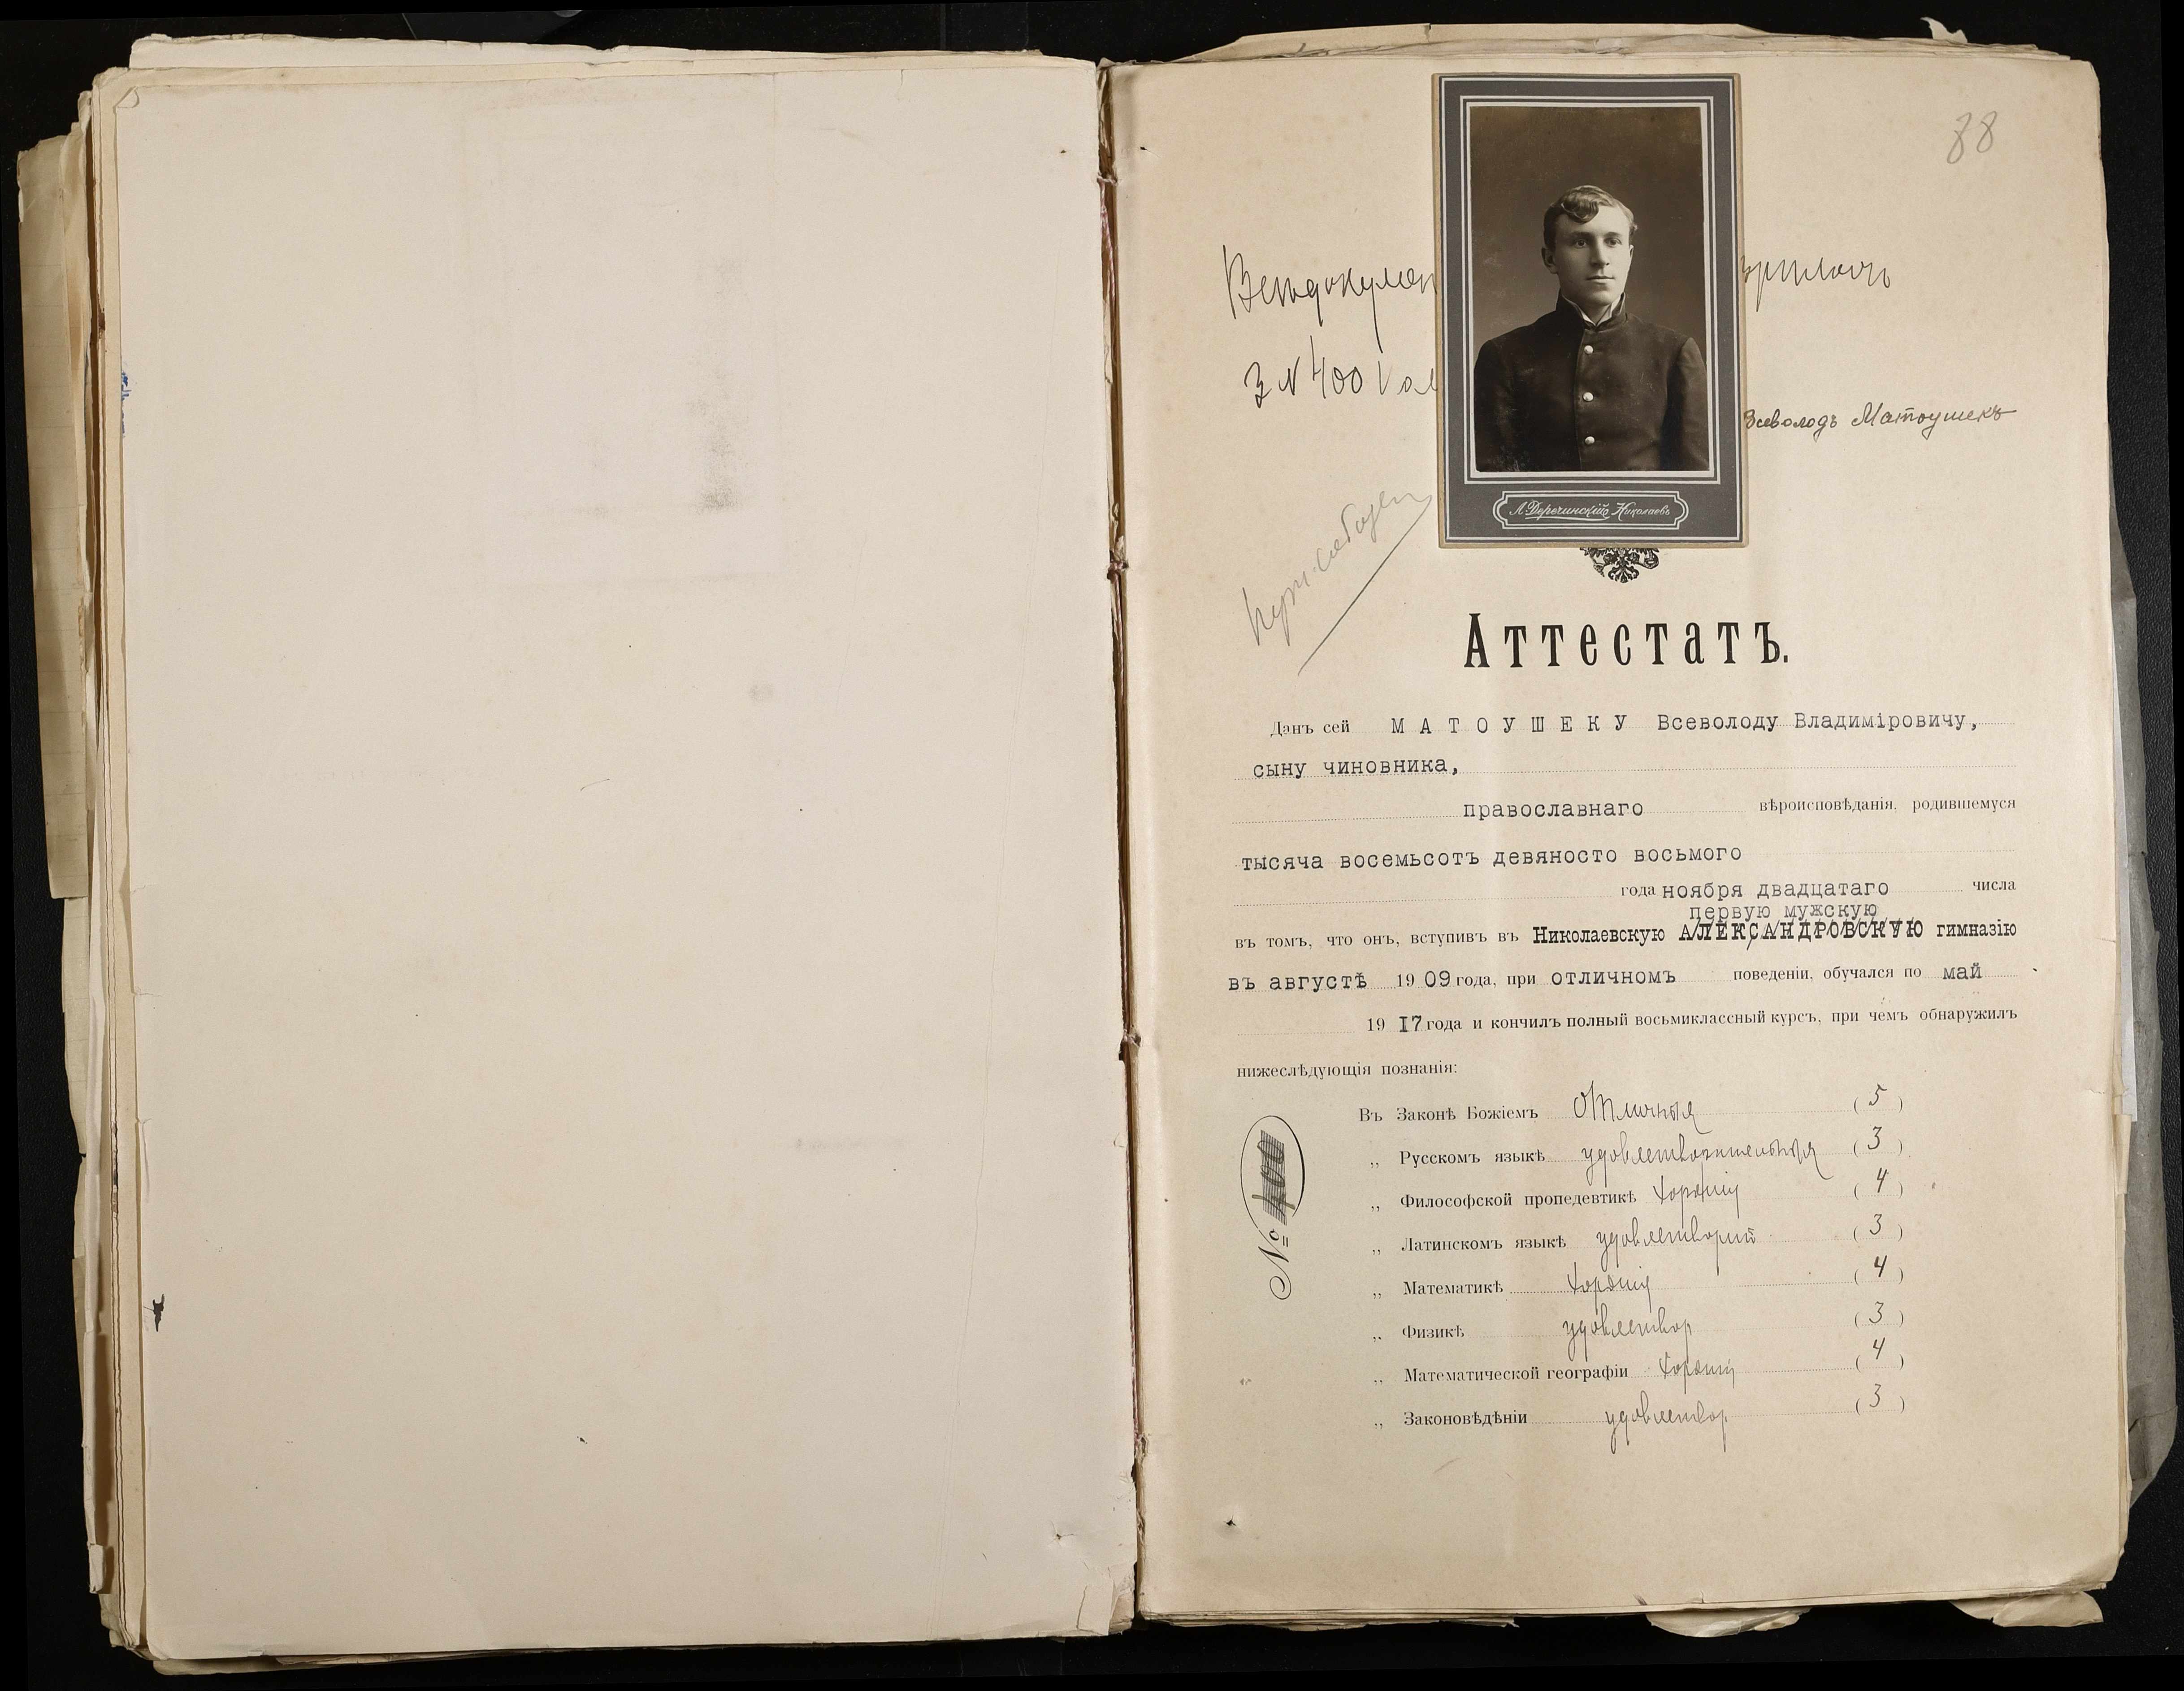 88
З № 400
Всеволодъ Матоушекъ
Л. Деречинскій Николаевъ
Аттестатъ.
Данъ сей МАТОУШЕКУ Всеволоду Владиміровичу,
сыну чиновника,
православнаго вѣроисповѣданія, родившемуся
тысяча восемьсотъ девяносто восьмого
года ноября двадцатаго числа
первую мужскую
въ томъ, что онъ, вступивъ въ Николаевскую АЛЕКСАНДРОВСКУЮ гимназію
въ августѣ 1909 года, при отличномъ поведеніи, обучался по май
1917 года и кончилъ полный восьмиклассный курсъ, при чемъ обнаружилъ
нижеслѣдующія познанія:
Въ Законѣ Божіемъ отличныя (5)
„ Русскомъ языкѣ удовлетворительныя (3)
„ Философской пропедевтикѣ хорошія (4)
„ Латинскомъ языкѣ удовлетворит (3)
„ Математикѣ хорошія (4)
„ Физикѣ удовлетвор (3)
„ Математической географіи хорошія (4)
„ Законовѣдѣніи удовлетвор (3)
№ 400